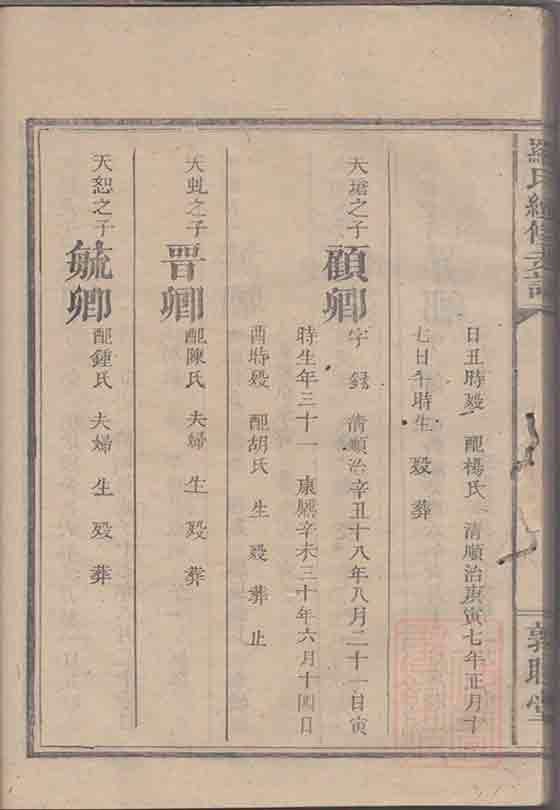 羅氏續修支譜
敦睦堂
日丑時歿 配楊氏 清順治庚寅七年正月十
七日午時生 歿葬
天瑃之子
顧卿
字 録 清順治辛丑十八年八月二十一日寅
時生年三十一 康熈辛未三十年六月十四日
酉時歿 配胡氏 生歿葬止
天虬之子
晋卿
配陳氏 夫婦 生歿葬
天恕之子
毓卿
配鍾氏 夫婦 生歿葬